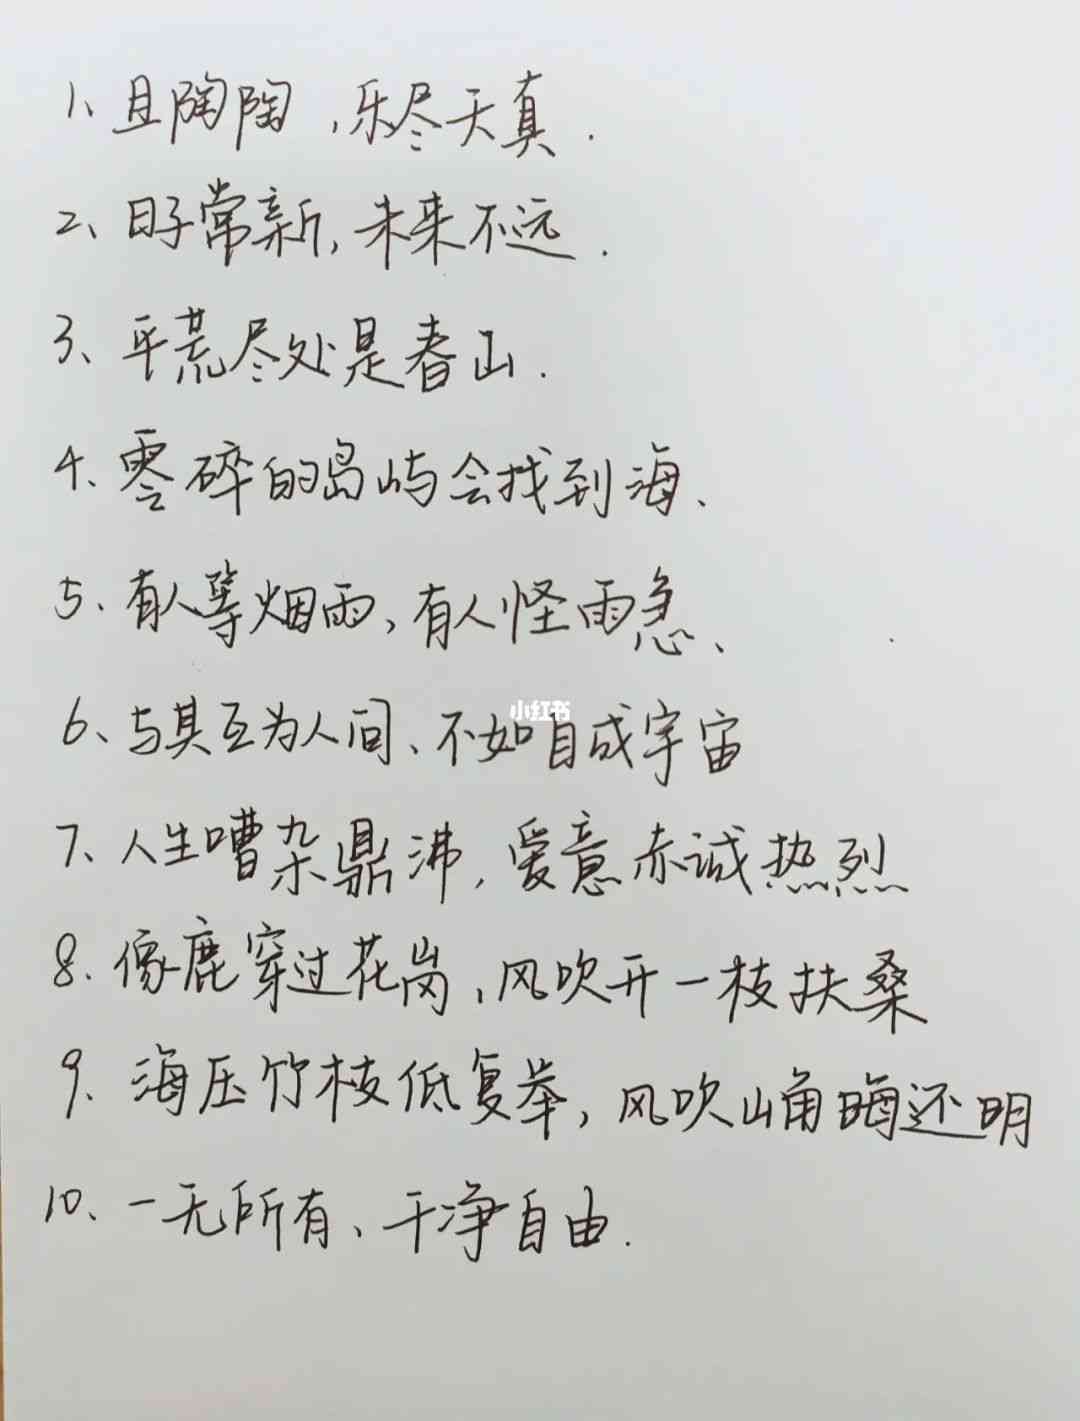 1、且陶陶,乐尽天真.
2、日子常新,未来不远.
3、平荒尽处是春山.
4、零碎的岛屿会找到海、
5、有人等烟雨,有人怪雨急、
6、与其互为人间、不如自成宇宙
小红书
7、人生嘈杂鼎沸,爱意赤诚热烈
8、像鹿穿过花岗,风吹开一枝扶桑
9、海压竹枝低复举,风吹山角晦还明
10、一无所有、干净自由.